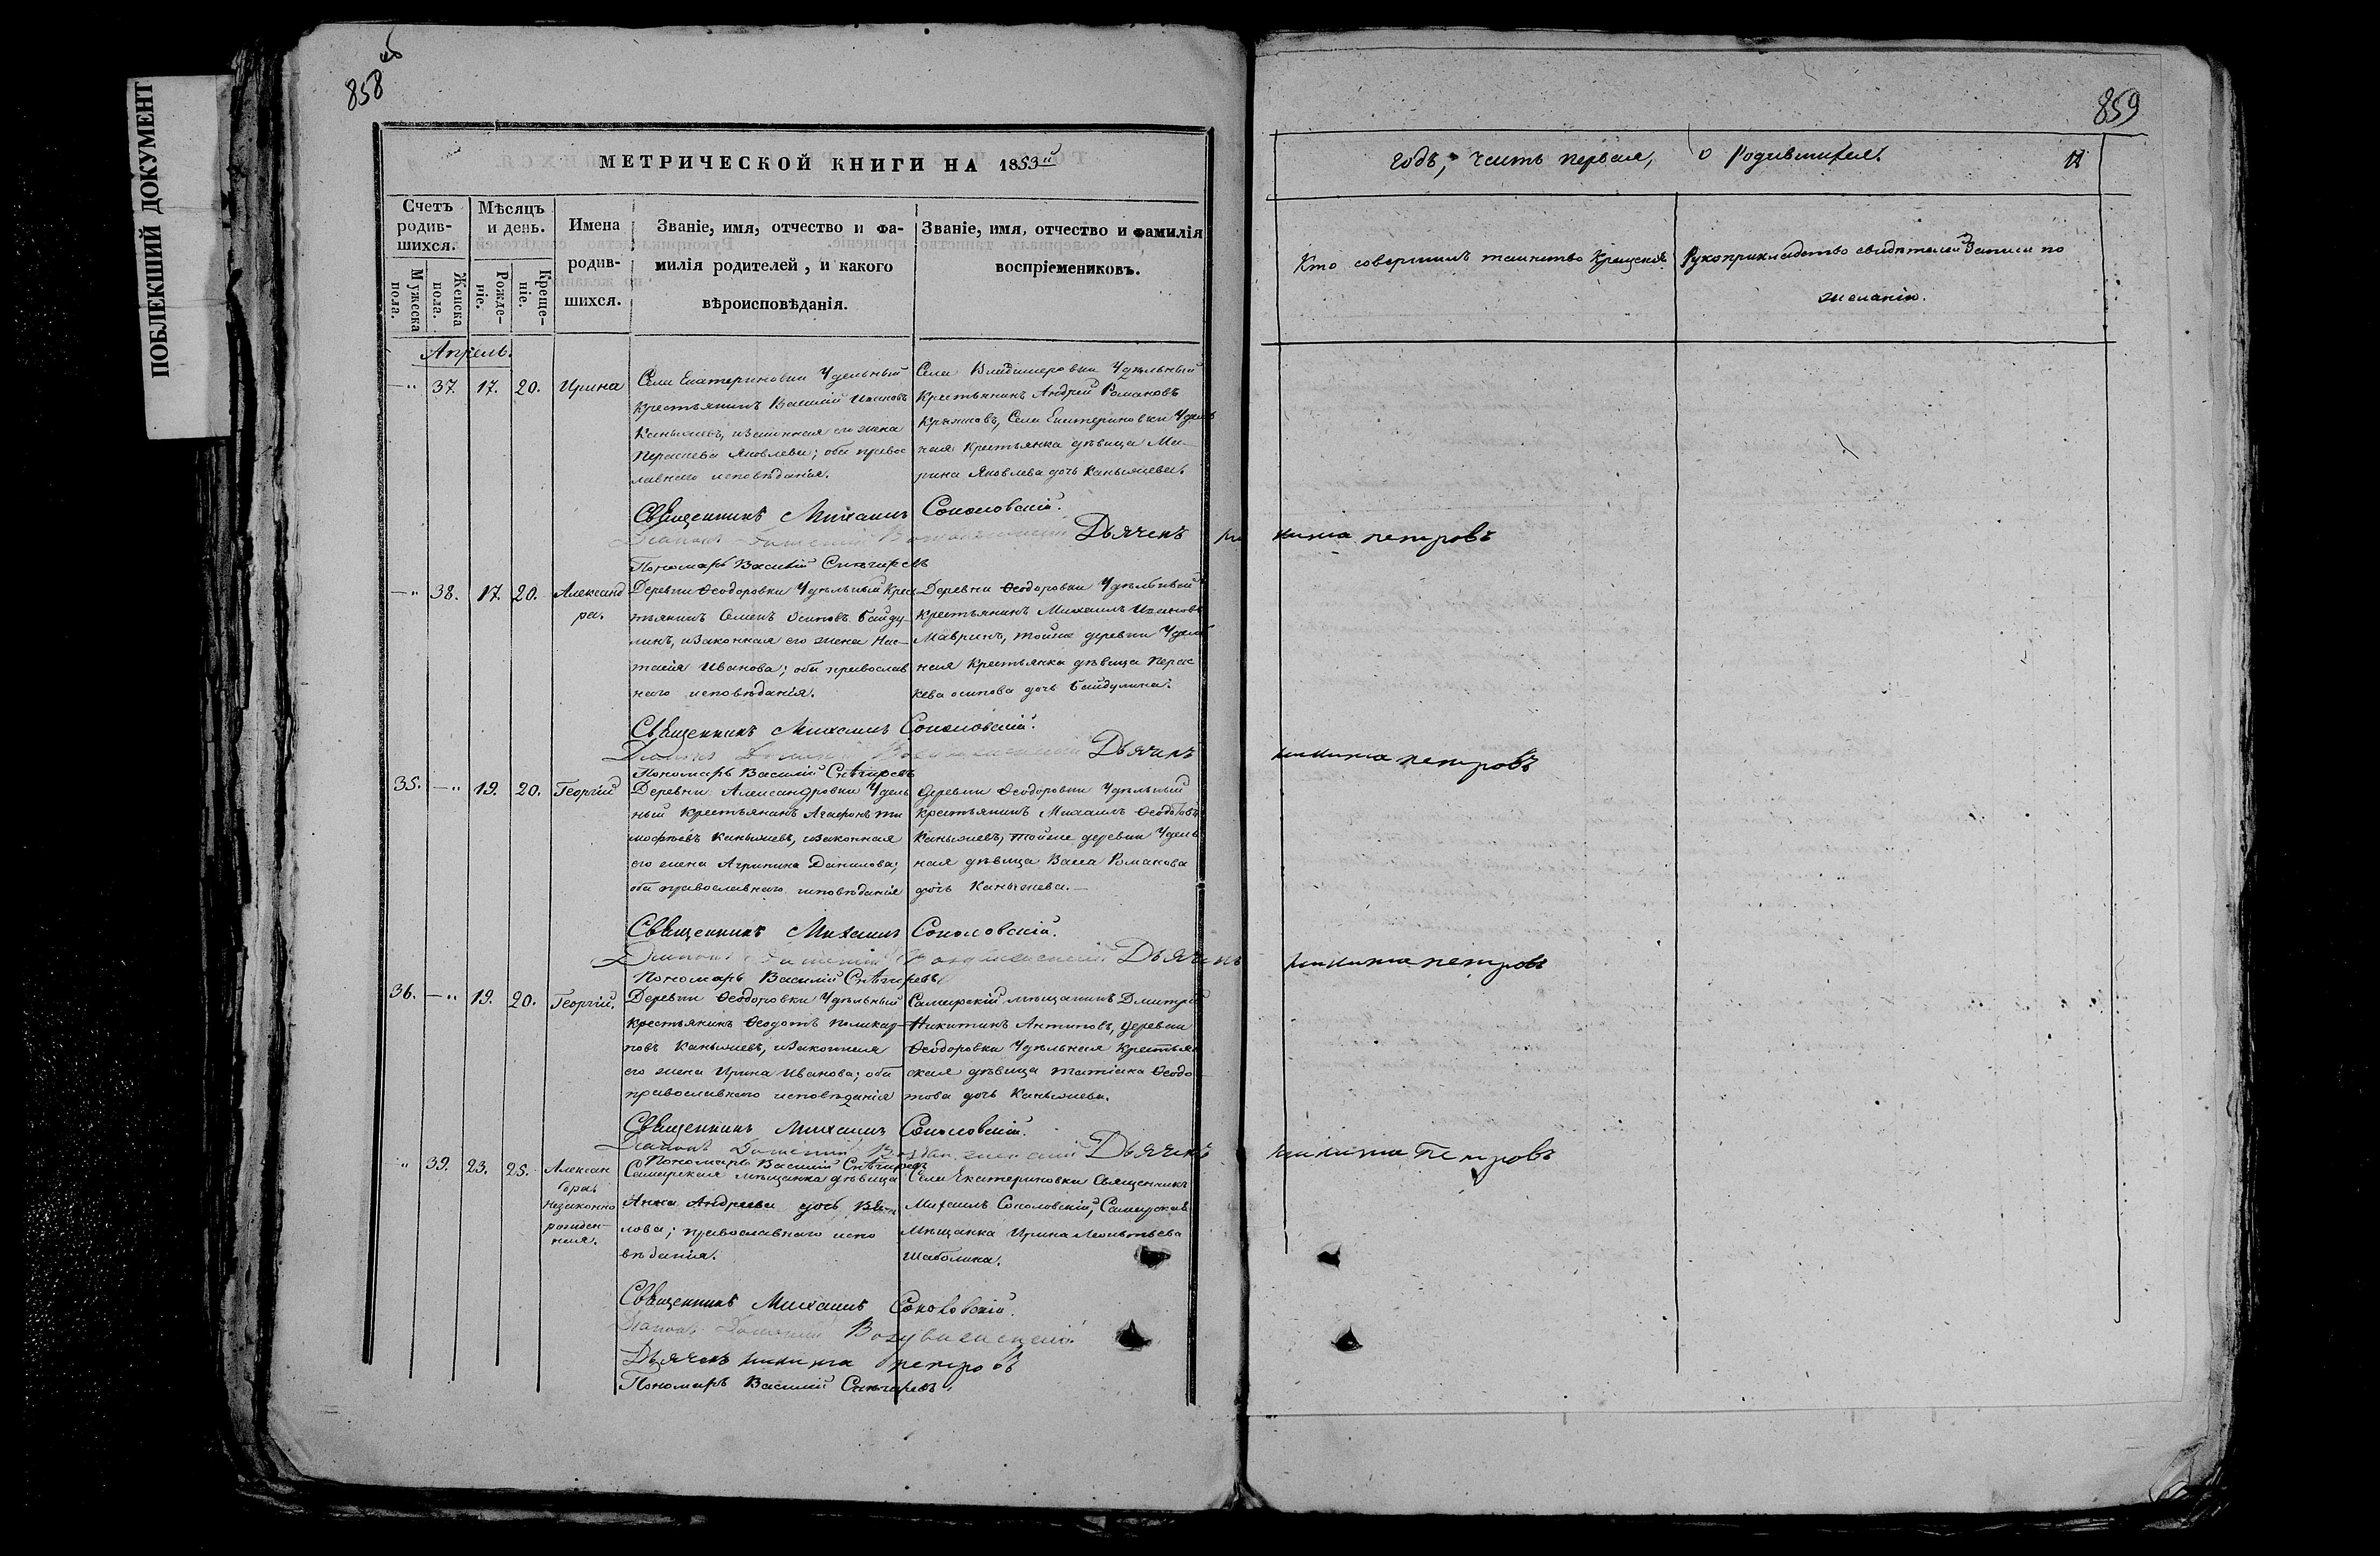 858 об
ПОБЛЕКШИЙ ДОКУМЕНТ
МЕТРИЧЕСКОЙ КНИГИ НА 1853й
Счетъ родив-шихся.
Мужеска пола.
Женска пола.
Мѣсяцъ и день.
Рожде-ніе.
Креще-ніе.
Имена родив-шихся.
Званіе, имя, отчество и фа-
милія родителей, и какого
вѣроисповѣданія.
Званіе, имя, отчество и фамилія
воспріемниковъ.
Апрель.
—" 37. 17. 20. Ирина
Села Екатериновки Удельный
крестьянинъ Василій Ивановъ
Канышевъ, изаконная его жена
Параскева Яковлева; оба правос
лавнаго исповѣданія.
Села Владимировки Удѣльный
Крестьянинъ Андрей Романовъ
Села Екатериновки Удель
ная Крестьянка дѣвица Ма-
рина Яковлева дочь Канышева.
Священникъ Михаилъ Соколовскій.
Діаконъ Дьячекъ
Пономарь Василій Снѣгиревъ
—" 38. 17. 20. Александ
ра.
Деревни Ѳеодоровки Удѣльный Крес
тьянинъ Семенъ Осиповъ Байду-
линъ, изаконная его жена Нас-
тасія Иванова; оба православ
наго исповѣданія.
Деревни Ѳеодоровки Удѣльный
Крестьянинъ Михаилъ Ивановъ
Мавринъ, тойже деревни Удель
ная Крестьянка дѣвица Парас
кева осипова дочь Байдулина.
Священникъ Михаилъ Соколовскій.
Діаконъ Дьячекъ
Пономарь Василій Снѣгиревъ
35. —" 19. 20. Георгій
Деревни Александровки Удель
ный Крестьянинъ Агафонъ Ти
мофѣевъ Канышевъ, изаконная
его жена Агрипина Данилова;
оба православнаго исповѣданія
деревни Ѳеодоровки Удѣльный
крестьянинъ Михаилъ Ѳеодотовъ
Канышевъ, тойже деревни Удель
ная дѣвица Васса Романова
дочь Канышева.—
Священникъ Михаилъ Соколовскій.
Діаконъ Дьячекъ
Пономарь Василій Снѣгиревъ
36. —" 19. 20. Георгій.
Деревни Ѳеодоровки Удѣльный
Крестьянинъ Ѳеодотъ Поликар-
повъ Канышевъ, изаконная
его жена Ирина Иванова; оба
православнаго исповѣданія
Самарскій мѣщанинъ Дмитрій
Никитинъ Антиповъ, деревни
Ѳеодоровки Удѣльная Крестьян
ская дѣвица Татіана Ѳеодо-
това дочь Канышева.
Священникъ Михаилъ Соколовскій.
Діаконъ Дьячекъ
Пономарь Василій Снѣгиревъ
" 39. 23. 25. Алексан
дра
незаконно
рожден-
ная.
Самарская мѣщанка дѣвица
Анна Андреева дочь
лова; православнаго испо
вѣданія.
Села Екатериновки Священникъ
Михаилъ Соколовскій, Самарская
Мѣщанка Ирина Леонтьева
Шаболина.
Священникъ Михаилъ Соколовскій.
Діаконъ Воздвиженскій
Дьячекъ никита петровъ
Пономарь Василій Снѣгиревъ
859
годъ, часть первая, о Родившихся. 11
Кто совершилъ таинство Крещенія.
Рукоприкладство свидѣтелей Записи по
желанію.
никита петровъ
никита петровъ
никита петровъ
никита петровъ